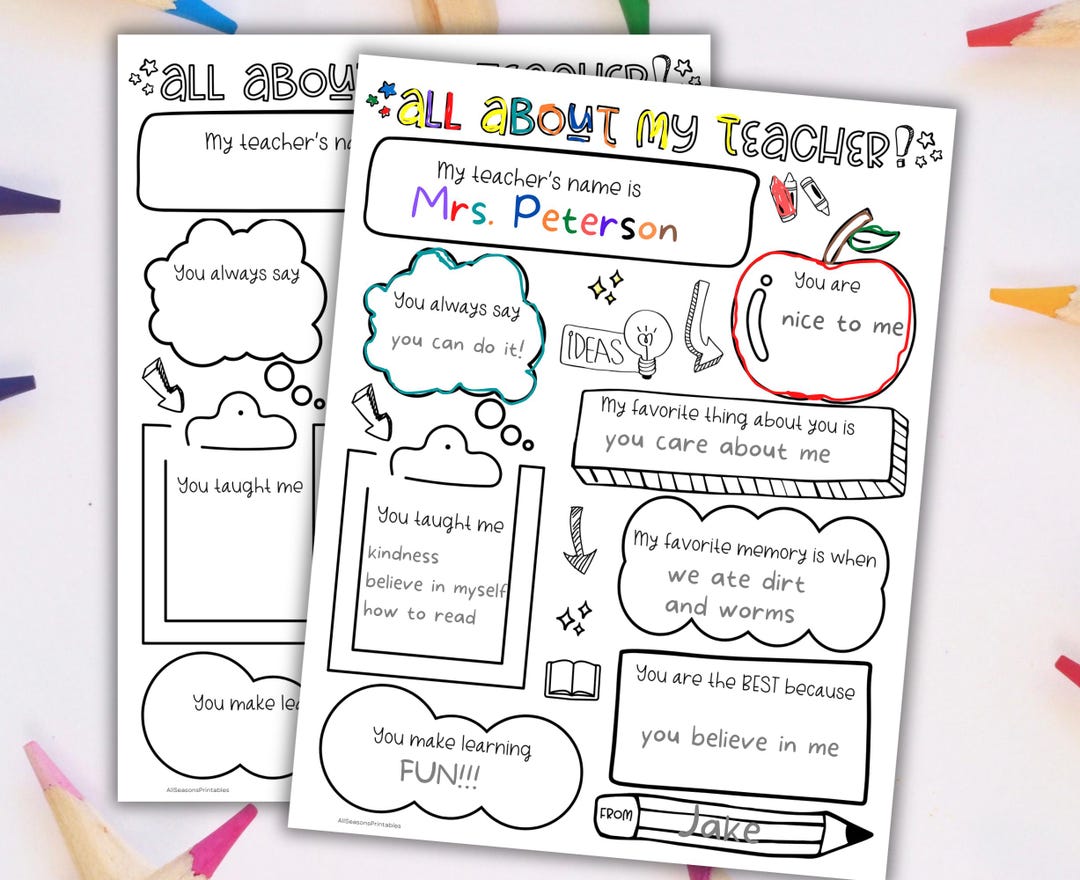 ALL ABOU TEACHER!
My teacher's na
You always say
You taught me
You make lea
AllSeasonsPrintables
ALL ABOUT MY TEACHER!
My teacher's name is
Mrs. Peterson
You always say
you can do it!
IDEAS
You are
nice to me
My favorite thing about you is
you care about me
You taught me
kindness
believe in myself
how to read
My favorite memory is when
we ate dirt
and worms
You are the BEST because
you believe in me
You make learning
FUN!!!
FROM
Jake
AllSeasonsPrintables